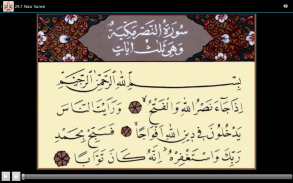 29.1 Nasr Suresi
سُورَةُ النَّصْرِ مَكِّيَّةٌ
وَهِيَ ثَلٰثُ اٰيَاتٍ
بِسْمِ اللّٰهِ الرَّحْمٰنِ الرَّحِيمِ
اِذَا جَٓاءَ نَصْرُ اللّٰهِ وَالْفَتْحُۙ وَرَاَيْتَ النَّاسَ
يَدْخُلُونَ فِي دِينِ اللّٰهِ اَفْوَاجًاۙ فَسَبِّحْ بِحَمْدِ
رَبِّكَ وَاسْتَغْفِرْهُۜ اِنَّهُ كَانَ تَوَّابًا